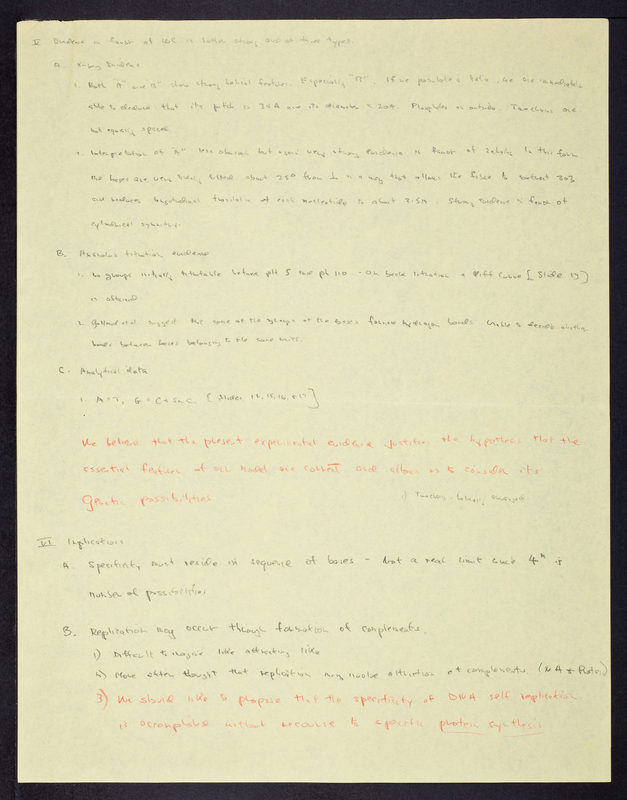 V Evidence in favor of W-C is rather strong and of three types.
A. X-ray Evidence
1. Both "A" and "B" show strong helical features. Especially "B". If we postulate a helix, we are immediately
able to deduce that its pitch is 34A and its diameter is 20A. Phosphates on outside. Two chains are
not equally spaced
2. Interpretation of "A" less obvious but again very strong evidence in favor of helix. In this form
the bases are very likely tilted about 25° from in a way that allows the fiber to contract 30%
and reduces translation of each nucleotide to about 2.5A. Strong evidence in favor of
cylindrical symmetry.
B. titration evidence
1. No groups initially titratable between pH 5 and pH 11.0 - On back titration a diff curve [Slide 13]
is obtained
2. Gulland et al suggest that some of the groups of the bases form hydrogen bonds. Unable to decide whether
bonds between bases belonging to the same units.
C. Analytical data
1. A = T, G = C + 5mC. [Slides 14, 15, 16, + 17]
We believe that the present experimental evidence justifies the hypothesis that the
essential features of our model are correct and allows us to consider its
Genetic possibilities
1) Two chains -
VI Implications
A. Specificity must reside in sequence of bases - Not a real limit since 4ⁿ is
number of possibilities
B. Replication may occur through formation of complements
1) Difficult to imagine like attracting like
2) More often thought that replication may involve attraction of complements (NA + Protein)
3) We should like to propose that the specificity of DNA self replication
is accomplished without recourse to specific protein synthesis